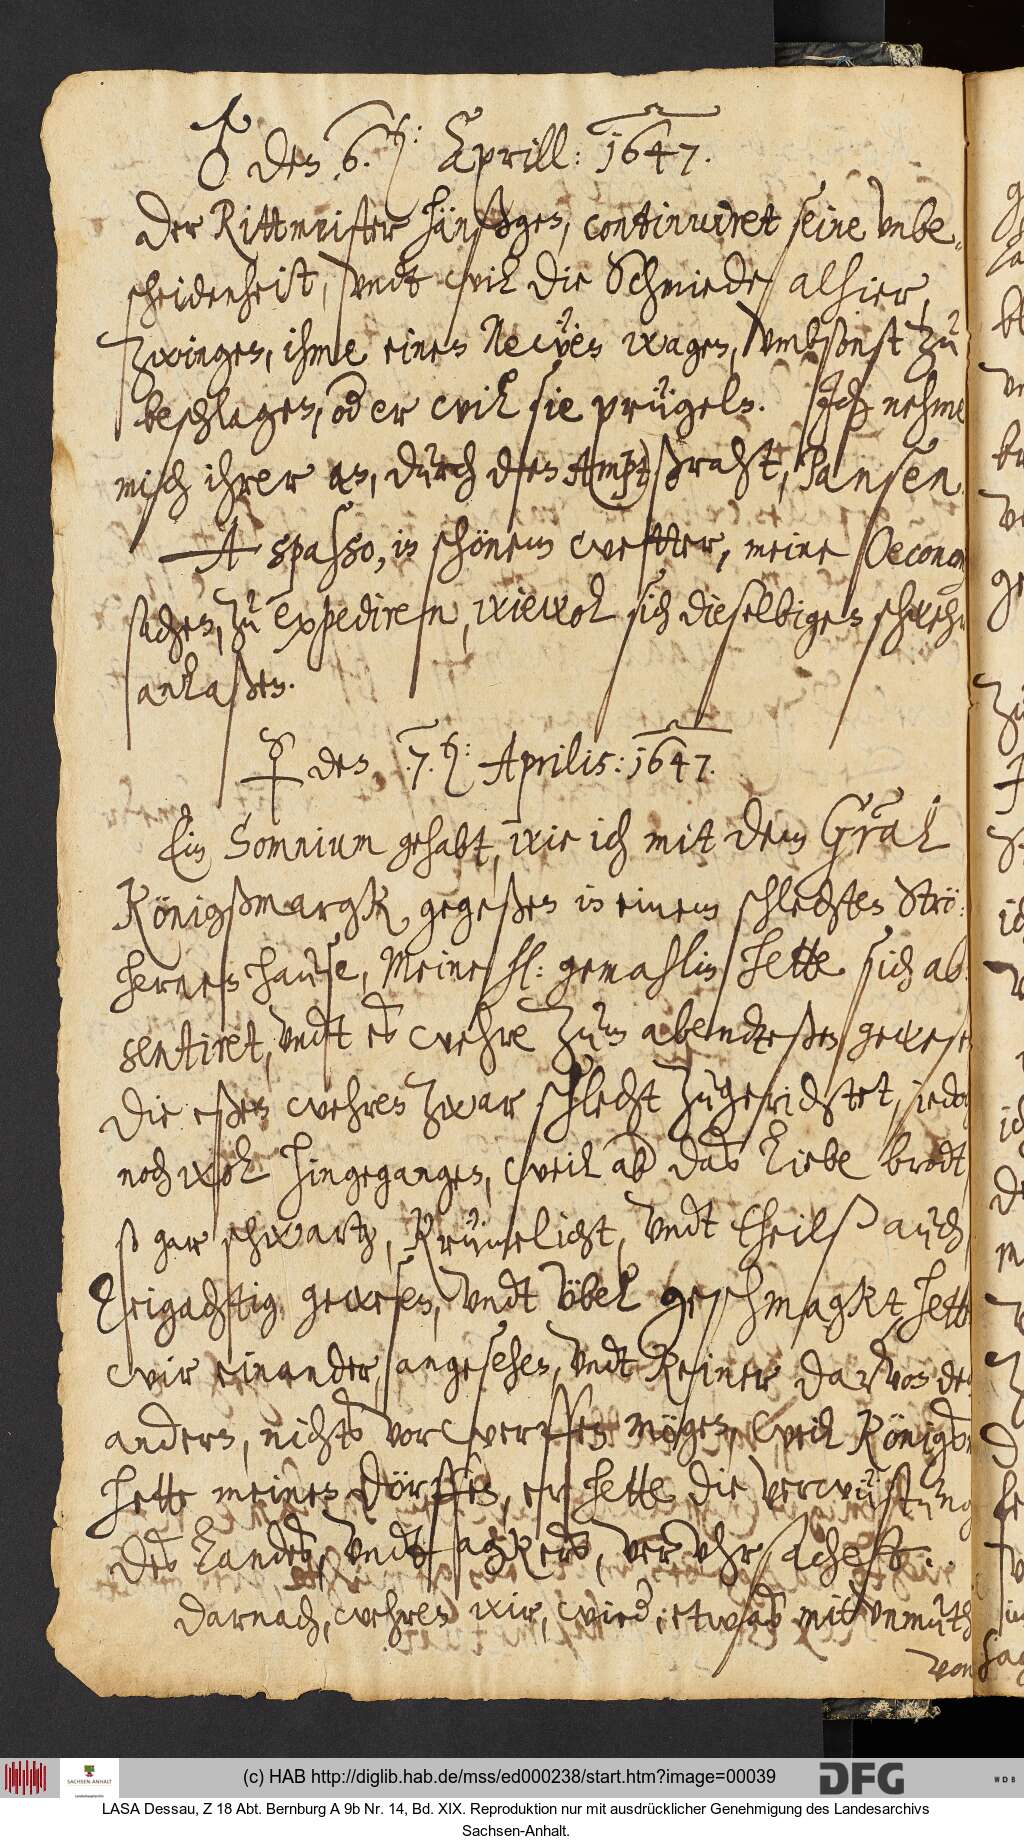 ♂ den 6. Aprill: 1647.
Der Rittmeister Hänsgen, continuiret seine vnbe-
scheidenheit, vndt will die Schmiede alhier,
zwingen, ihme einen Newen wagen, vmbsonst zu
beschlagen, oder will sie prügeln. Ich nehme
mich ihrer an, durch den Ampt raht, Pansen
A spasso, in schönem wetter, meine Oeconom
sachen, zu expediren, wiewol sich dieselbigen schwehr
anlaßen.
☿ den 7. Aprilis: 1647.
Ein Somnium gehabt, wie ich mit dem Graf
Königßmargk, gegeßen in einem schlechten Strö-
hernen hause, Meine hl: gemahlin hette sich ab-
sentiret, vndt es wehre zum abendteßen gewesen
Die eßen wehren zwar schlecht zugerichtet, iedoch
noch wol hingegangen, weil aber das liebe brodt
so gar schwartz, krümelicht, vndt theilß auch
teigachtig gewesen, vndt vbel geschmagkt, hetten
wir einander, angesehen, vndt keiner dar von dem
andern, nichts vorwerffen mögen, weil
hette meinen dörffen, er hette die verwüstung
des landes, vndt agkers, vervhrsachett.
Darnach, wehren wir, wieder etwas mit vnmuth
von
(c) HAB http://diglib.hab.de/mss/ed000238/start.htm?image=00039
DFG
SACHSEN-ANHALT
WDB
LASA Dessau, Z 18 Abt. Bernburg A 9b Nr. 14, Bd. XIX. Reproduktion nur mit ausdrücklicher Genehmigung des Landesarchivs
Sachsen-Anhalt.